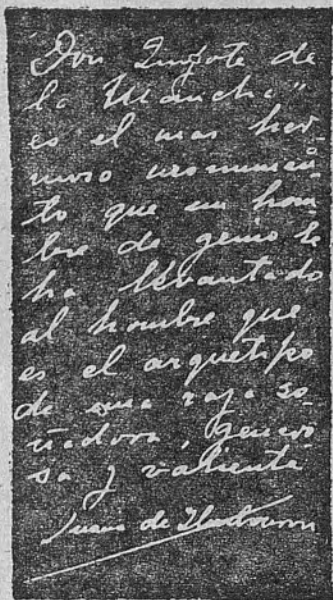 "Don Quijote de
la Mancha"
es el mas her-
moso monumen-
to que un hom-
bre de genio le
ha levantado
al hombre que
es el arquetipo
de una raza so-
ñadora, genero
sa y valiente
Juana de Ibarbourou